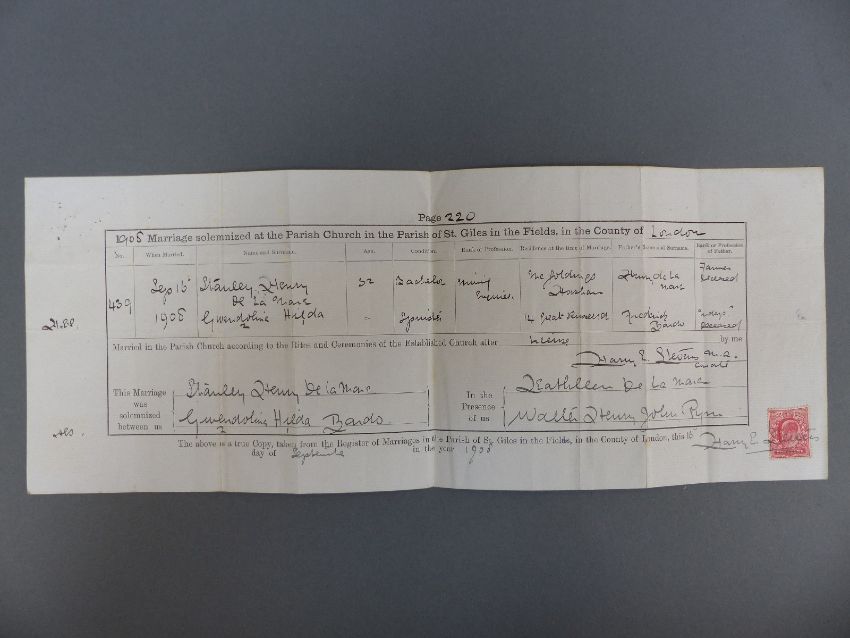 Page 220
1908 Marriage solemnized at the Parish Church in the Parish of St. Giles in the Fields, in the County of London
No. When Married. Name and Surname. Age. Condition. Rank or Profession. Residence at the time of Marriage. Father's Name and Surname. Rank or Profession of Father.
439 Sep 15 1908 Stanley Henry De La Mare 32 Bachelor Mining Engineer Horsham Henry de la Mare Farmer deceased
Gwendoline Hilda Spinster 14 Great Frederick Bardo deceased
Married in the Parish Church according to the Rites and Ceremonies of the Established Church after license by me
Harry E. Stevens M.A.
This Marriage was solemnized between us
Stanley Henry De La Mare
Gwendoline Hilda Bardo
In the Presence of us
Kathleen De La Mare
Walter Henry John
The above is a true Copy, taken from the Register of Marriages in the Parish of St. Giles in the Fields, in the County of London, this 15 Harry E. Stevens
day of September in the year 1908